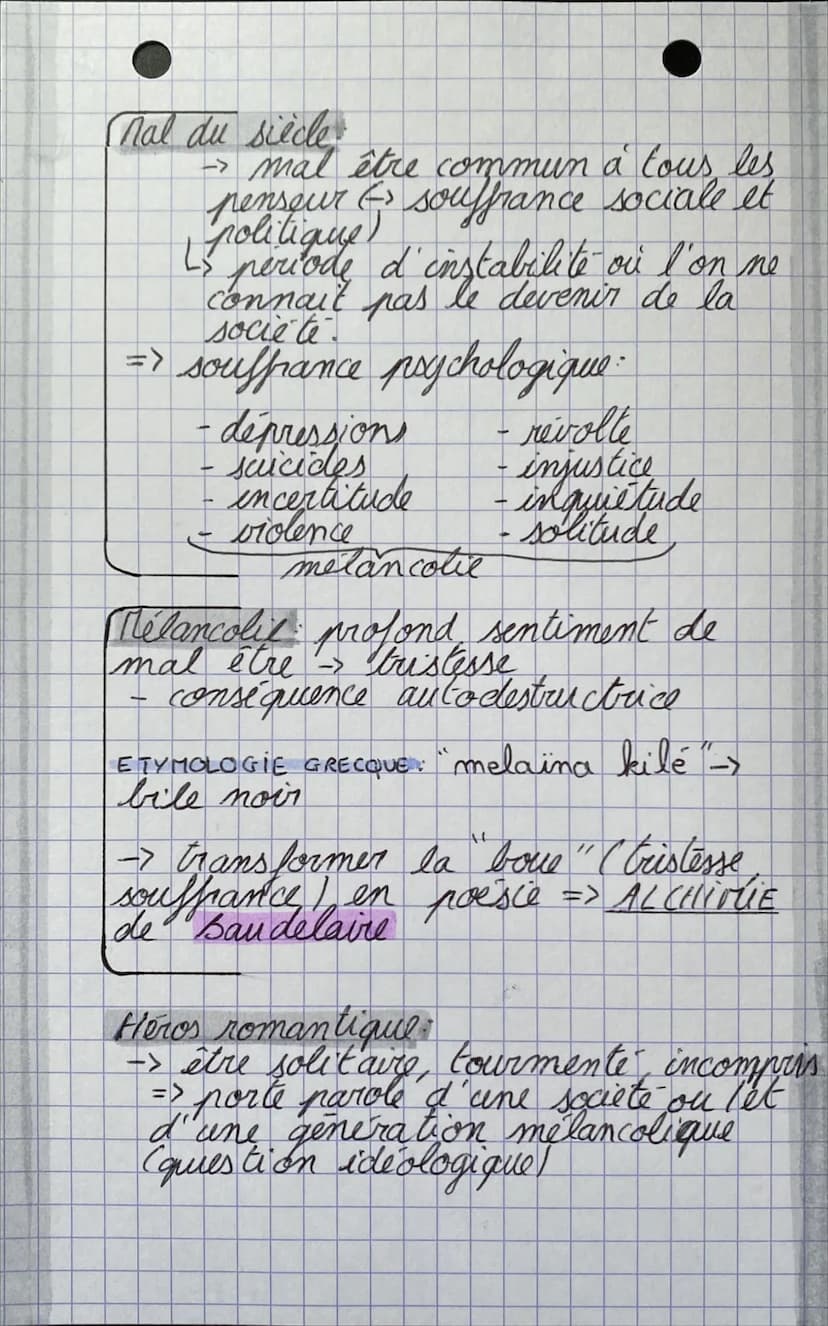 Mal du siècle:
-> mal être commun à tous les
penseur (-> souffrance sociale et
politique)
↳ période d'instabilité où l'on ne
connait pas le devenir de la
société.
=> souffrance psychologique:
- dépressions - révolte
- suicides - injustice
- incertitude - inquiétude
- violence - solitude
mélancolie
Mélancolie: profond sentiment de
mal être -> tristesse
- conséquence autodestructrice
ETYMOLOGIE GRECQUE: "melaïna kilé" ->
bile noir
-> transformer la "boue" (tristesse,
souffrance) en poésie => ALCHIMIE
de Baudelaire
Héros romantique:
-> être solitaire, tourmenté, incompris
=> porte parole d'une société ou/et
d'une génération mélancolique
(question idéologique)